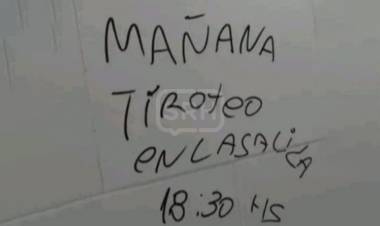 MAÑANA
TIROTEO
EN LA SALIDA
18:30 HS